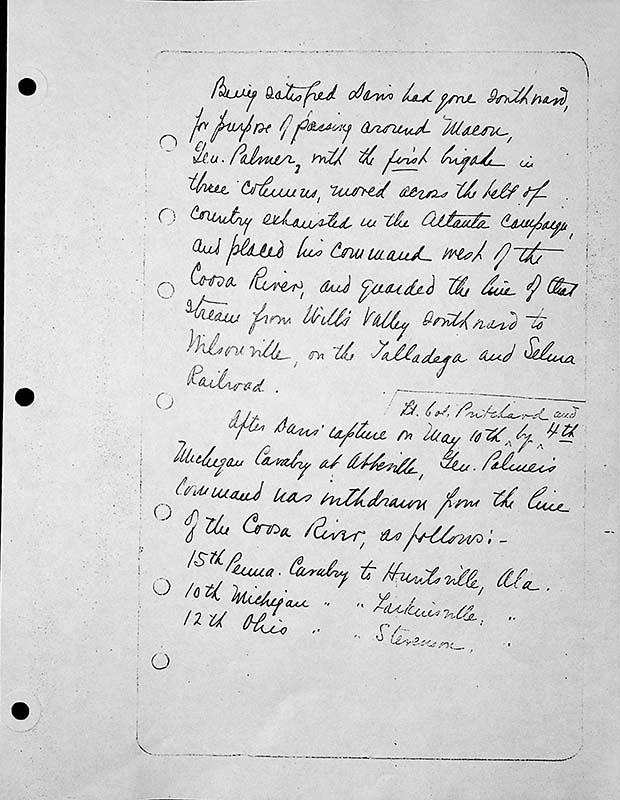 Being satisfied Davis had gone southward,
for purpose of passing around Macon,
Gen. Palmer, with the first brigade in
three columns, moved across the belt of
country exhausted in the Altanta campaign,
and placed his command west of the
Coosa River, and guarded the line of that
stream from Will's Valley southward to
Wilsonville, on the Talladega and Selma
Railroad.
Lt. Col. Pritchard and
After Davis' capture on May 10th, by 4th
Michigan Cavalry at Abbeville, Gen. Palmer's
command was withdrawn from the line
of the Coosa River, as follows:-
15th Penna. Cavalry to Huntsville, Ala.
10th Michigan " " Larkinsville, "
12th Ohio " " Stevenson, "